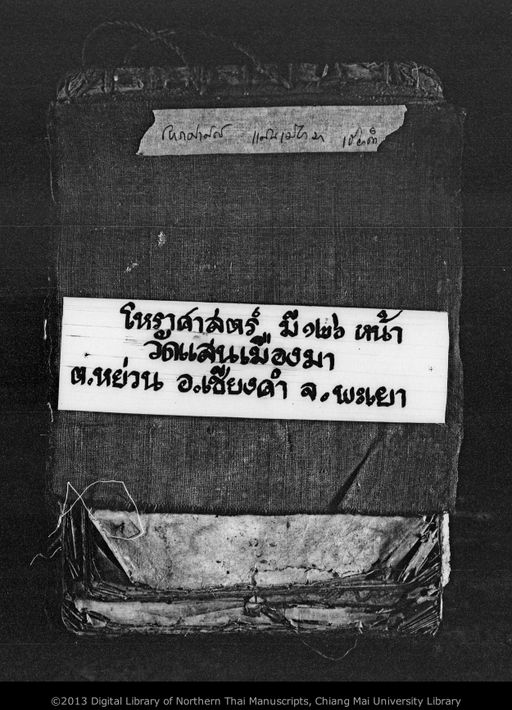 โหราศาสตร์ แสนเมืองมา เชียงคำ
โหราศาสตร์ มี ๑๒๖ หน้า
วัดแสนเมืองมา
ต.หย่วน อ.เชียงคำ จ.พะเยา
©2013 Digital Library of Northern Thai Manuscripts, Chiang Mai University Library